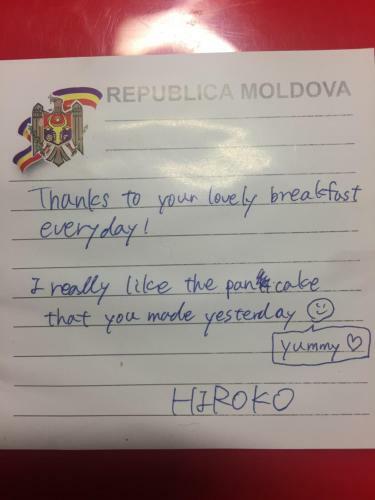 REPUBLICA MOLDOVA
Thanks to your lovely breakfast
everyday!
I really like the pancake
that you made yesterday
yummy
HIROKO